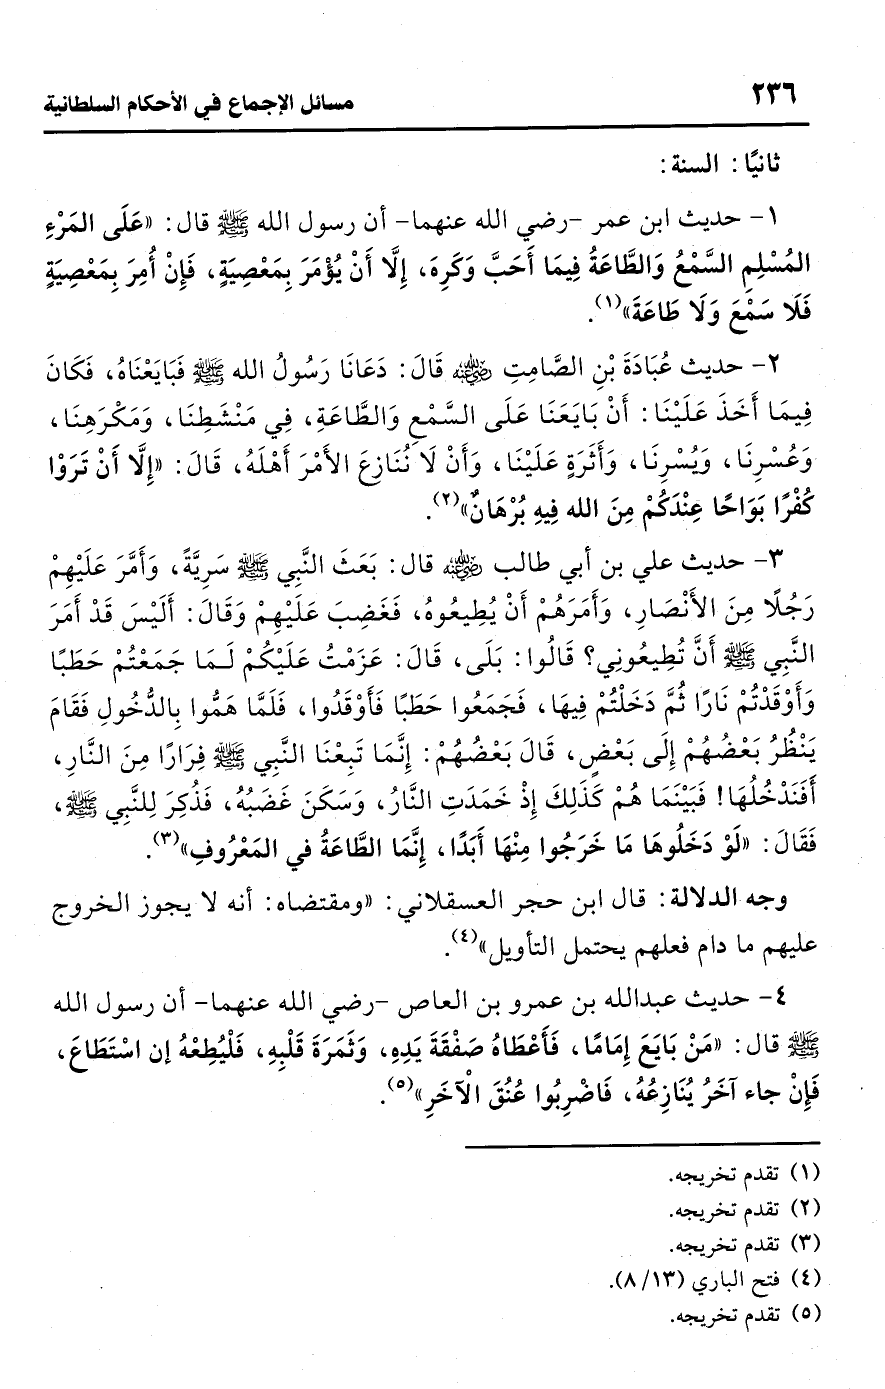 ٢٣٦
مسائل الإجماع في الأحكام السلطانية
ثانيًا: السنة:
١- حديث ابن عمر -رضي الله عنهما- أن رسول الله ﷺ قال: «عَلَى المَرْءِ
المُسْلِمِ السَّمْعُ وَالطَّاعَةُ فِيمَا أَحَبَّ وَكَرِهَ، إِلَّا أَنْ يُؤْمَرَ بِمَعْصِيَةٍ، فَإِنْ أُمِرَ بِمَعْصِيَةٍ
فَلَا سَمْعَ وَلَا طَاعَةَ»(١).
٢- حديث عُبَادَةَ بْنِ الصَّامِتِ رضي الله عنه قَالَ: دَعَانَا رَسُولُ الله ﷺ فَبَايَعْنَاهُ، فَكَانَ
فِيمَا أَخَذَ عَلَيْنَا: أَنْ بَايَعَنَا عَلَى السَّمْعِ وَالطَّاعَةِ، فِي مَنْشَطِنَا، وَمَكْرَهِنَا،
وَعُسْرِنَا، وَيُسْرِنَا، وَأَثَرَةٍ عَلَيْنَا، وَأَنْ لَا نُنَازِعَ الأَمْرَ أَهْلَهُ، قَالَ: «إِلَّا أَنْ تَرَوْا
كُفْرًا بَوَاحًا عِنْدَكُمْ مِنَ الله فِيهِ بُرْهَانٌ»(٢).
٣- حديث علي بن أبي طالب رضي الله عنه قال: بَعَثَ النَّبِي ﷺ سَرِيَّةً، وَأَمَّرَ عَلَيْهِمْ
رَجُلًا مِنَ الأَنْصَارِ، وَأَمَرَهُمْ أَنْ يُطِيعُوهُ، فَغَضِبَ عَلَيْهِمْ وَقَالَ: أَلَيْسَ قَدْ أَمَرَ
النَّبِي ﷺ أَنَّ تُطِيعُونِي؟ قَالُوا: بَلَى، قَالَ: عَزَمْتُ عَلَيْكُمْ لَـمَا جَمَعْتُمْ حَطَبًا
وَأَوْقَدْتُمْ نَارًا ثُمَّ دَخَلْتُمْ فِيهَا، فَجَمَعُوا حَطَبًا فَأَوْقَدُوا، فَلَمَّا هَمُّوا بِالدُّخُولِ فَقَامَ
يَنْظُرُ بَعْضُهُمْ إِلَى بَعْضٍ، قَالَ بَعْضُهُمْ: إِنَّمَا تَبِعْنَا النَّبِي ﷺ فِرَارًا مِنَ النَّارِ،
أَفَنَدْخُلُهَا! فَبَيْنَمَا هُمْ كَذَلِكَ إِذْ خَمَدَتِ النَّارُ، وَسَكَنَ غَضَبُهُ، فَذُكِرَ لِلنَّبِي ﷺ،
فَقَالَ: «لَوْ دَخَلُوهَا مَا خَرَجُوا مِنْهَا أَبَدًا، إِنَّمَا الطَّاعَةُ في المَعْرُوفِ»(٣).
وجه الدلالة: قال ابن حجر العسقلاني: «ومقتضاه: أنه لا يجوز الخروج
عليهم ما دام فعلهم يحتمل التأويل»(٤).
٤- حديث عبدالله بن عمرو بن العاص -رضي الله عنهما- أن رسول الله
ﷺ قال: «مَنْ بَايَعَ إِمَامًا، فَأَعْطَاهُ صَفْقَةَ يَدِهِ، وَثَمَرَةَ قَلْبِهِ، فَلْيُطِعْهُ إن اسْتَطَاعَ،
فَإِنْ جاء آخَرُ يُنَازِعُهُ، فَاضْرِبُوا عُنُقَ الْآخَرِ»(٥).
(١) تقدم تخريجه.
(٢) تقدم تخريجه.
(٣) تقدم تخريجه.
(٤) فتح الباري (١٣/ ٨).
(٥) تقدم تخريجه.